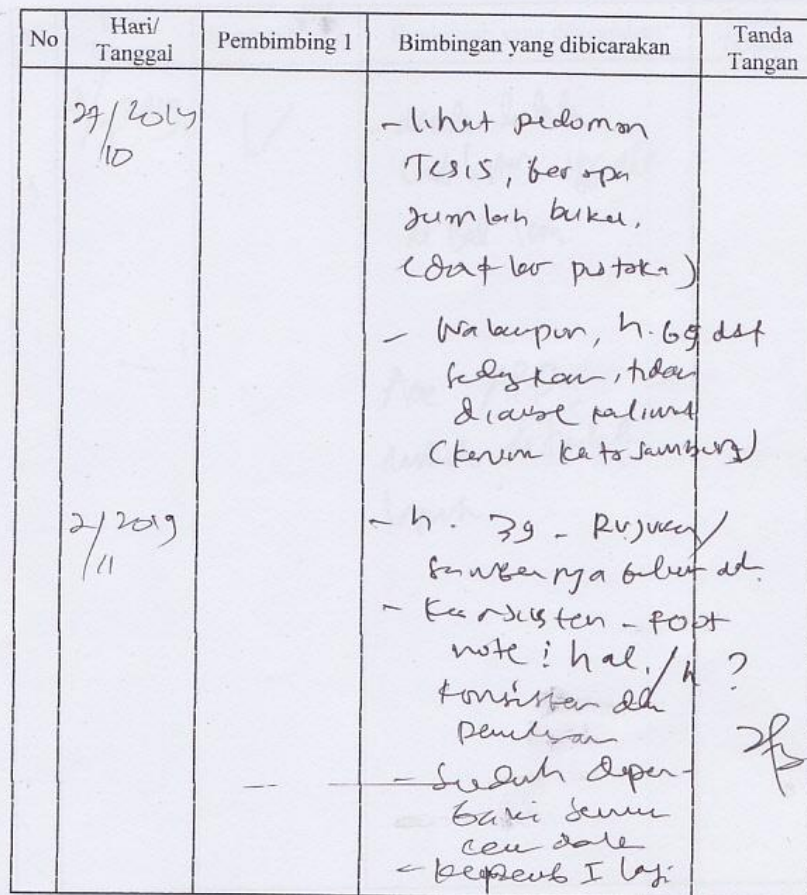 No
Hari/
Tanggal
Pembimbing 1
Bimbingan yang dibicarakan
Tanda
Tangan
27/2019
10
- lihat pedoman
Tesis, berapa
Jumlah buku,
(daftar pustaka)
- Walaupun, h. 69 dst
tidak
kalimat
(karena kata sambung)
2/2019
11
- h. 39 - Rujukan/
Sumbernya belum ada.
- Konsisten - Foot
note : hal. / h ?
konsisten dlm
penulisan
- Sudah diper-
baiki semua
I lagi